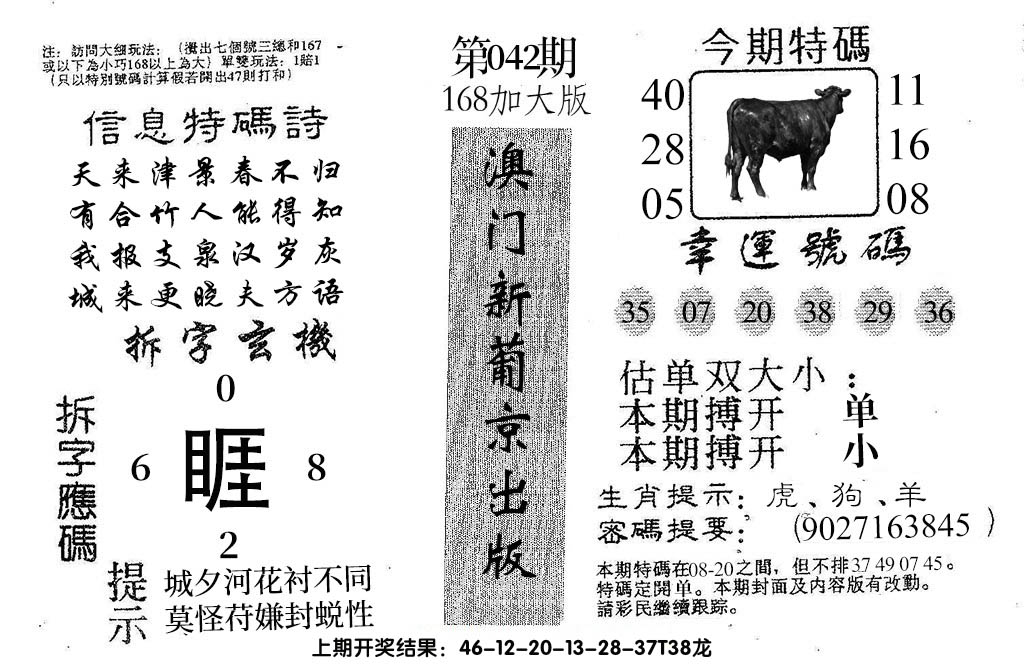 注：訪問大细玩法：（攪出七個號三總和167
或以下為小巧168以上為大）單雙玩法：1賠1
（只以特別號碼計算假若開出47則打和）
信息特碼詩
天来津景春不归
有合竹人能得知
我报支泉汉岁灰
城来更晓夫方语
拆字玄機
拆字應碼
0
6
睚
8
2
提示
城夕河花衬不同
莫怪苻嫌封蜕性
第042期
168加大版
澳门新葡京出版
今期特碼
40
28
05
11
16
08
幸運號碼
35 07 20 38 29 36
估单双大小：
本期搏开 单
本期搏开 小
生肖提示：虎、狗、羊
密碼提要：（9027163845）
本期特碼在08-20之間，但不排37 49 07 45。
特碼定開单。本期封面及内容版有改動。
請彩民繼續跟踪。
上期开奖结果：46-12-20-13-28-37T38龙